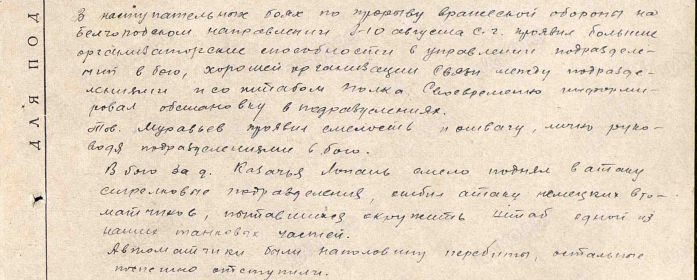 В наступательных боях по прорыву вражеской обороны на
Белгородском направлении 5-10 августа с.г. проявил большие
организаторские способности в управлении подразделе-
ний в бою, хорошей организации связи между подразде-
лениями и со штабом полка. Своевременно информи-
ровал обстановку в подразделениях.
Тов. Муравьев проявил смелость и отвагу, лично руко-
водя подразделениями в бою.
В бою за д. Казачья Лопань смело поднял в атаку
стрелковые подразделения, отбил атаку немецких авто-
матчиков, пытавшихся окружить штаб одной из
наших танковых частей.
Автоматчики были наполовину перебиты, остальные
поспешно отступили.
ДЛЯ ПОД